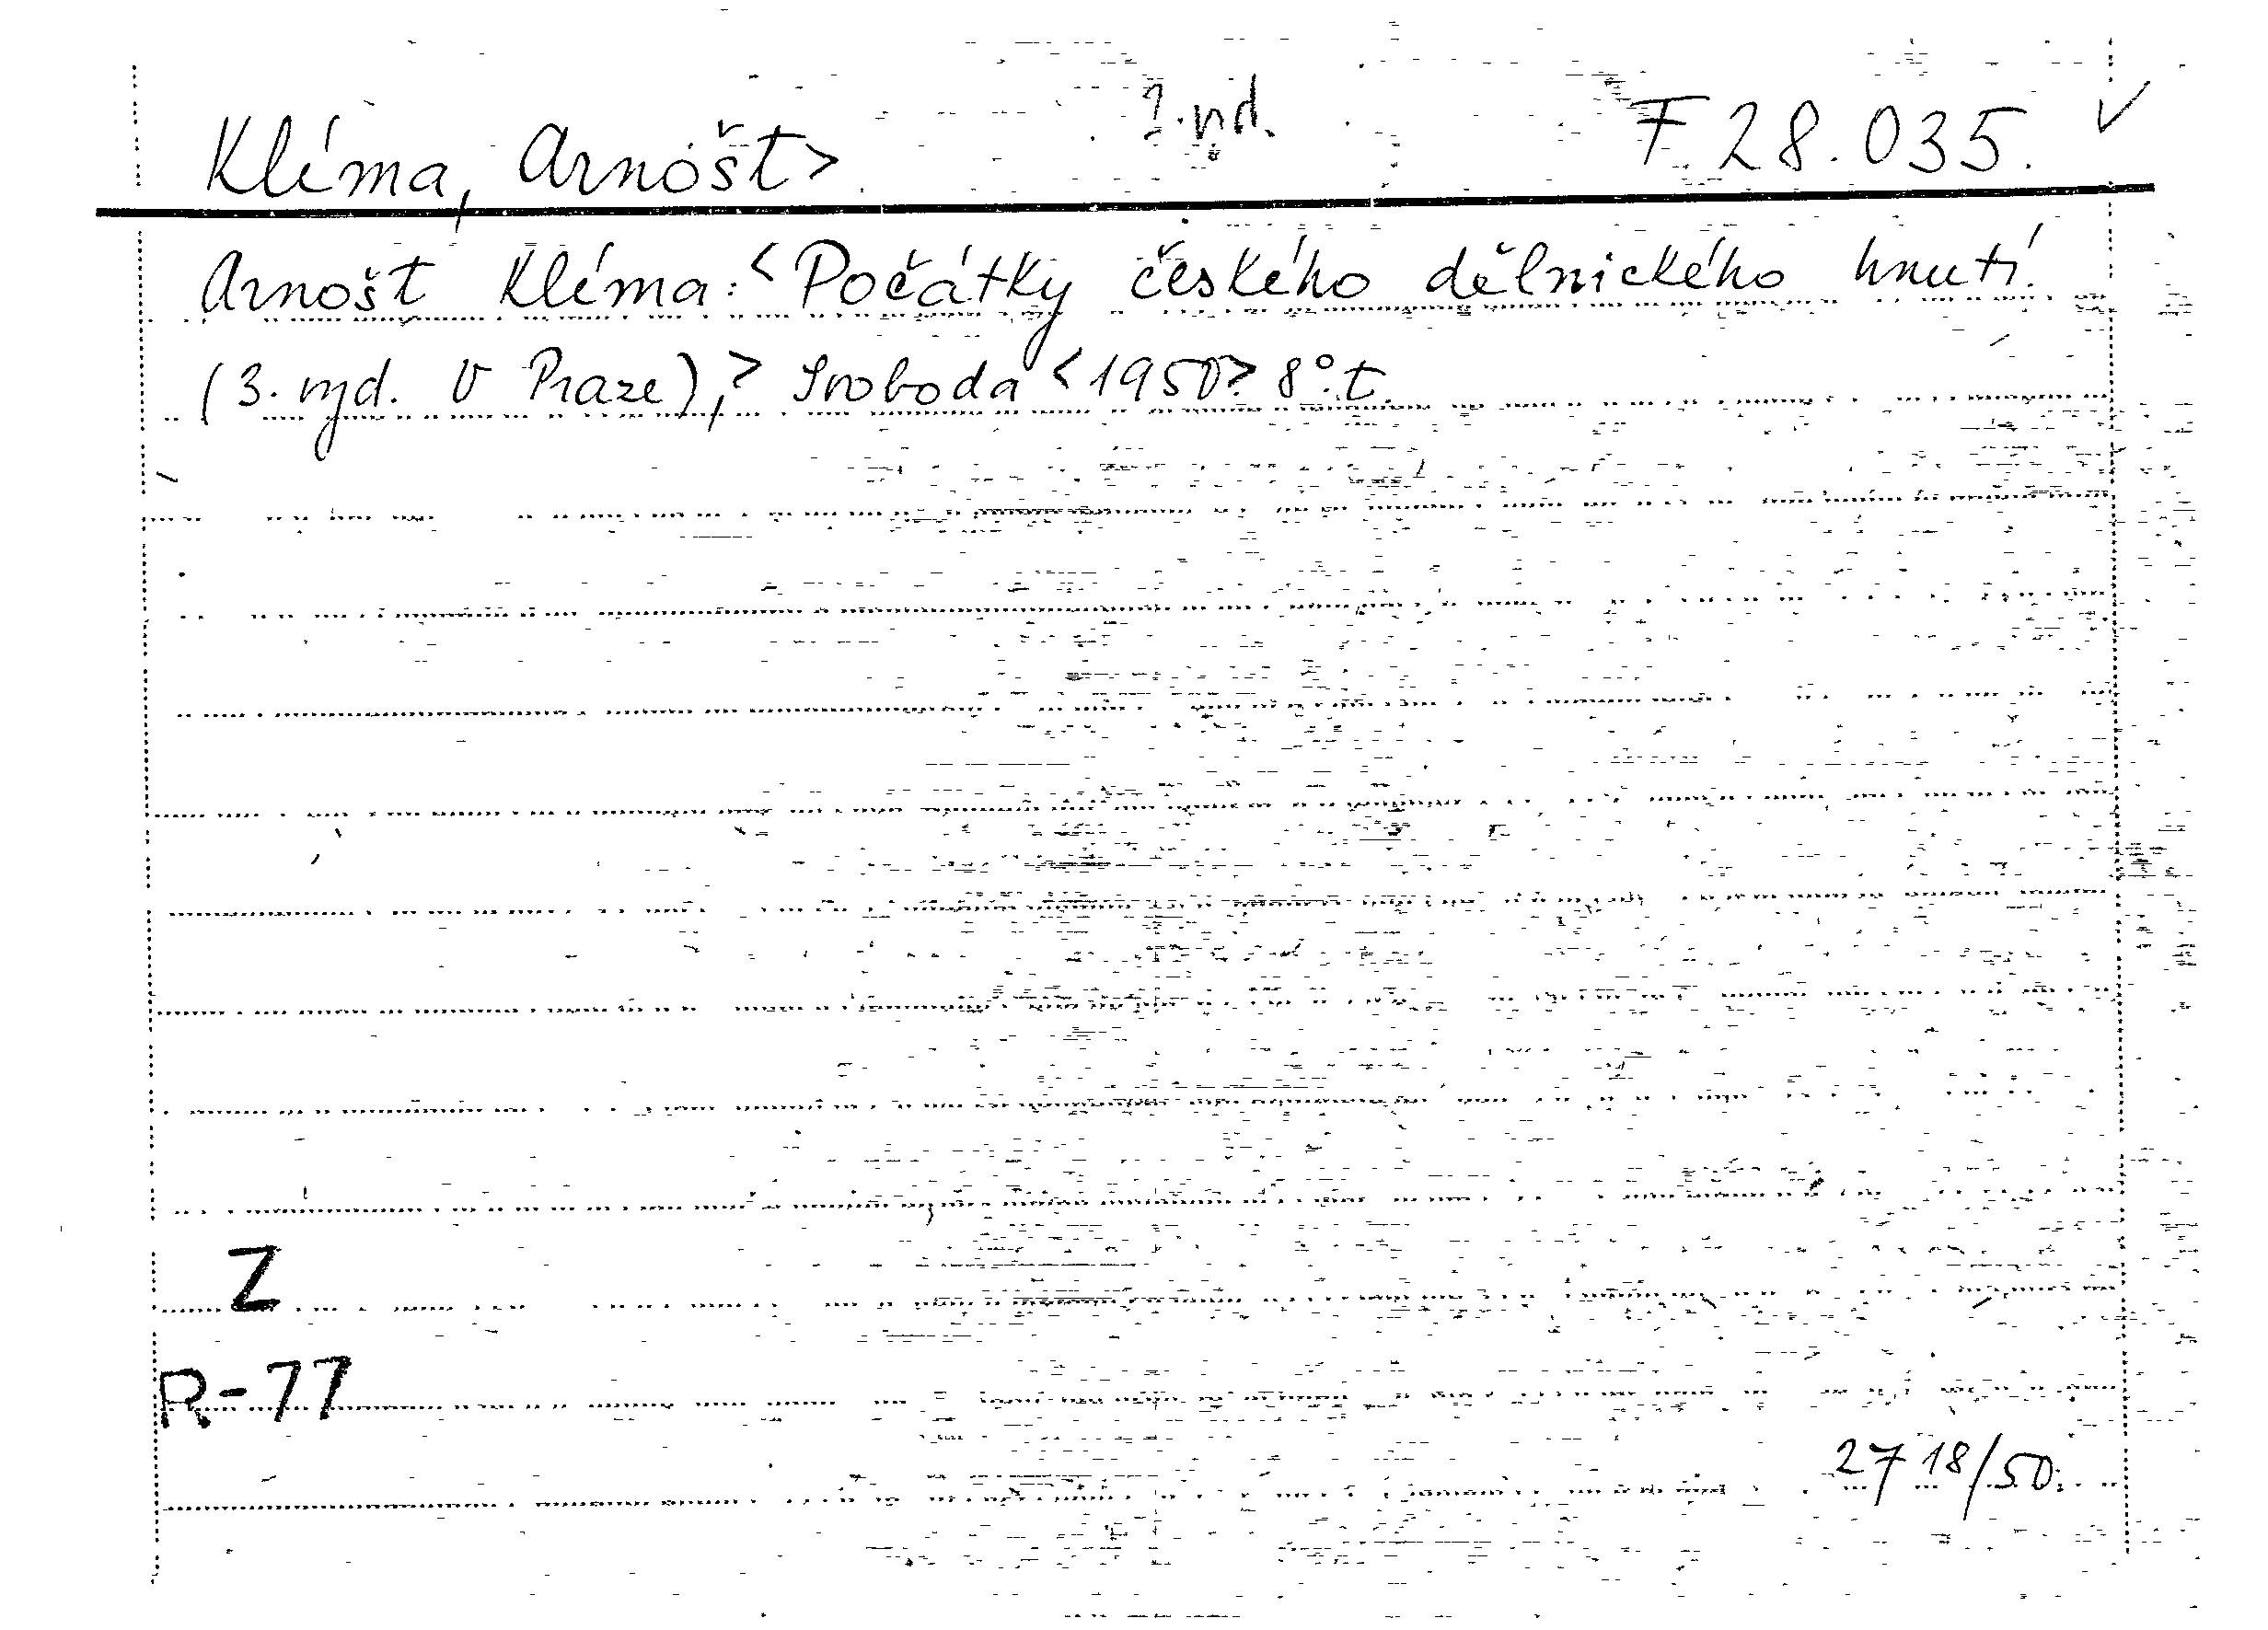 Klíma, Arnošt> F 28.035. ✓
Arnošt Klíma: <Počátky českého dělnického hnutí.
(3. vyd. V Praze),> Svoboda <1950> 8°. t.
Z
R-77
2718/50.